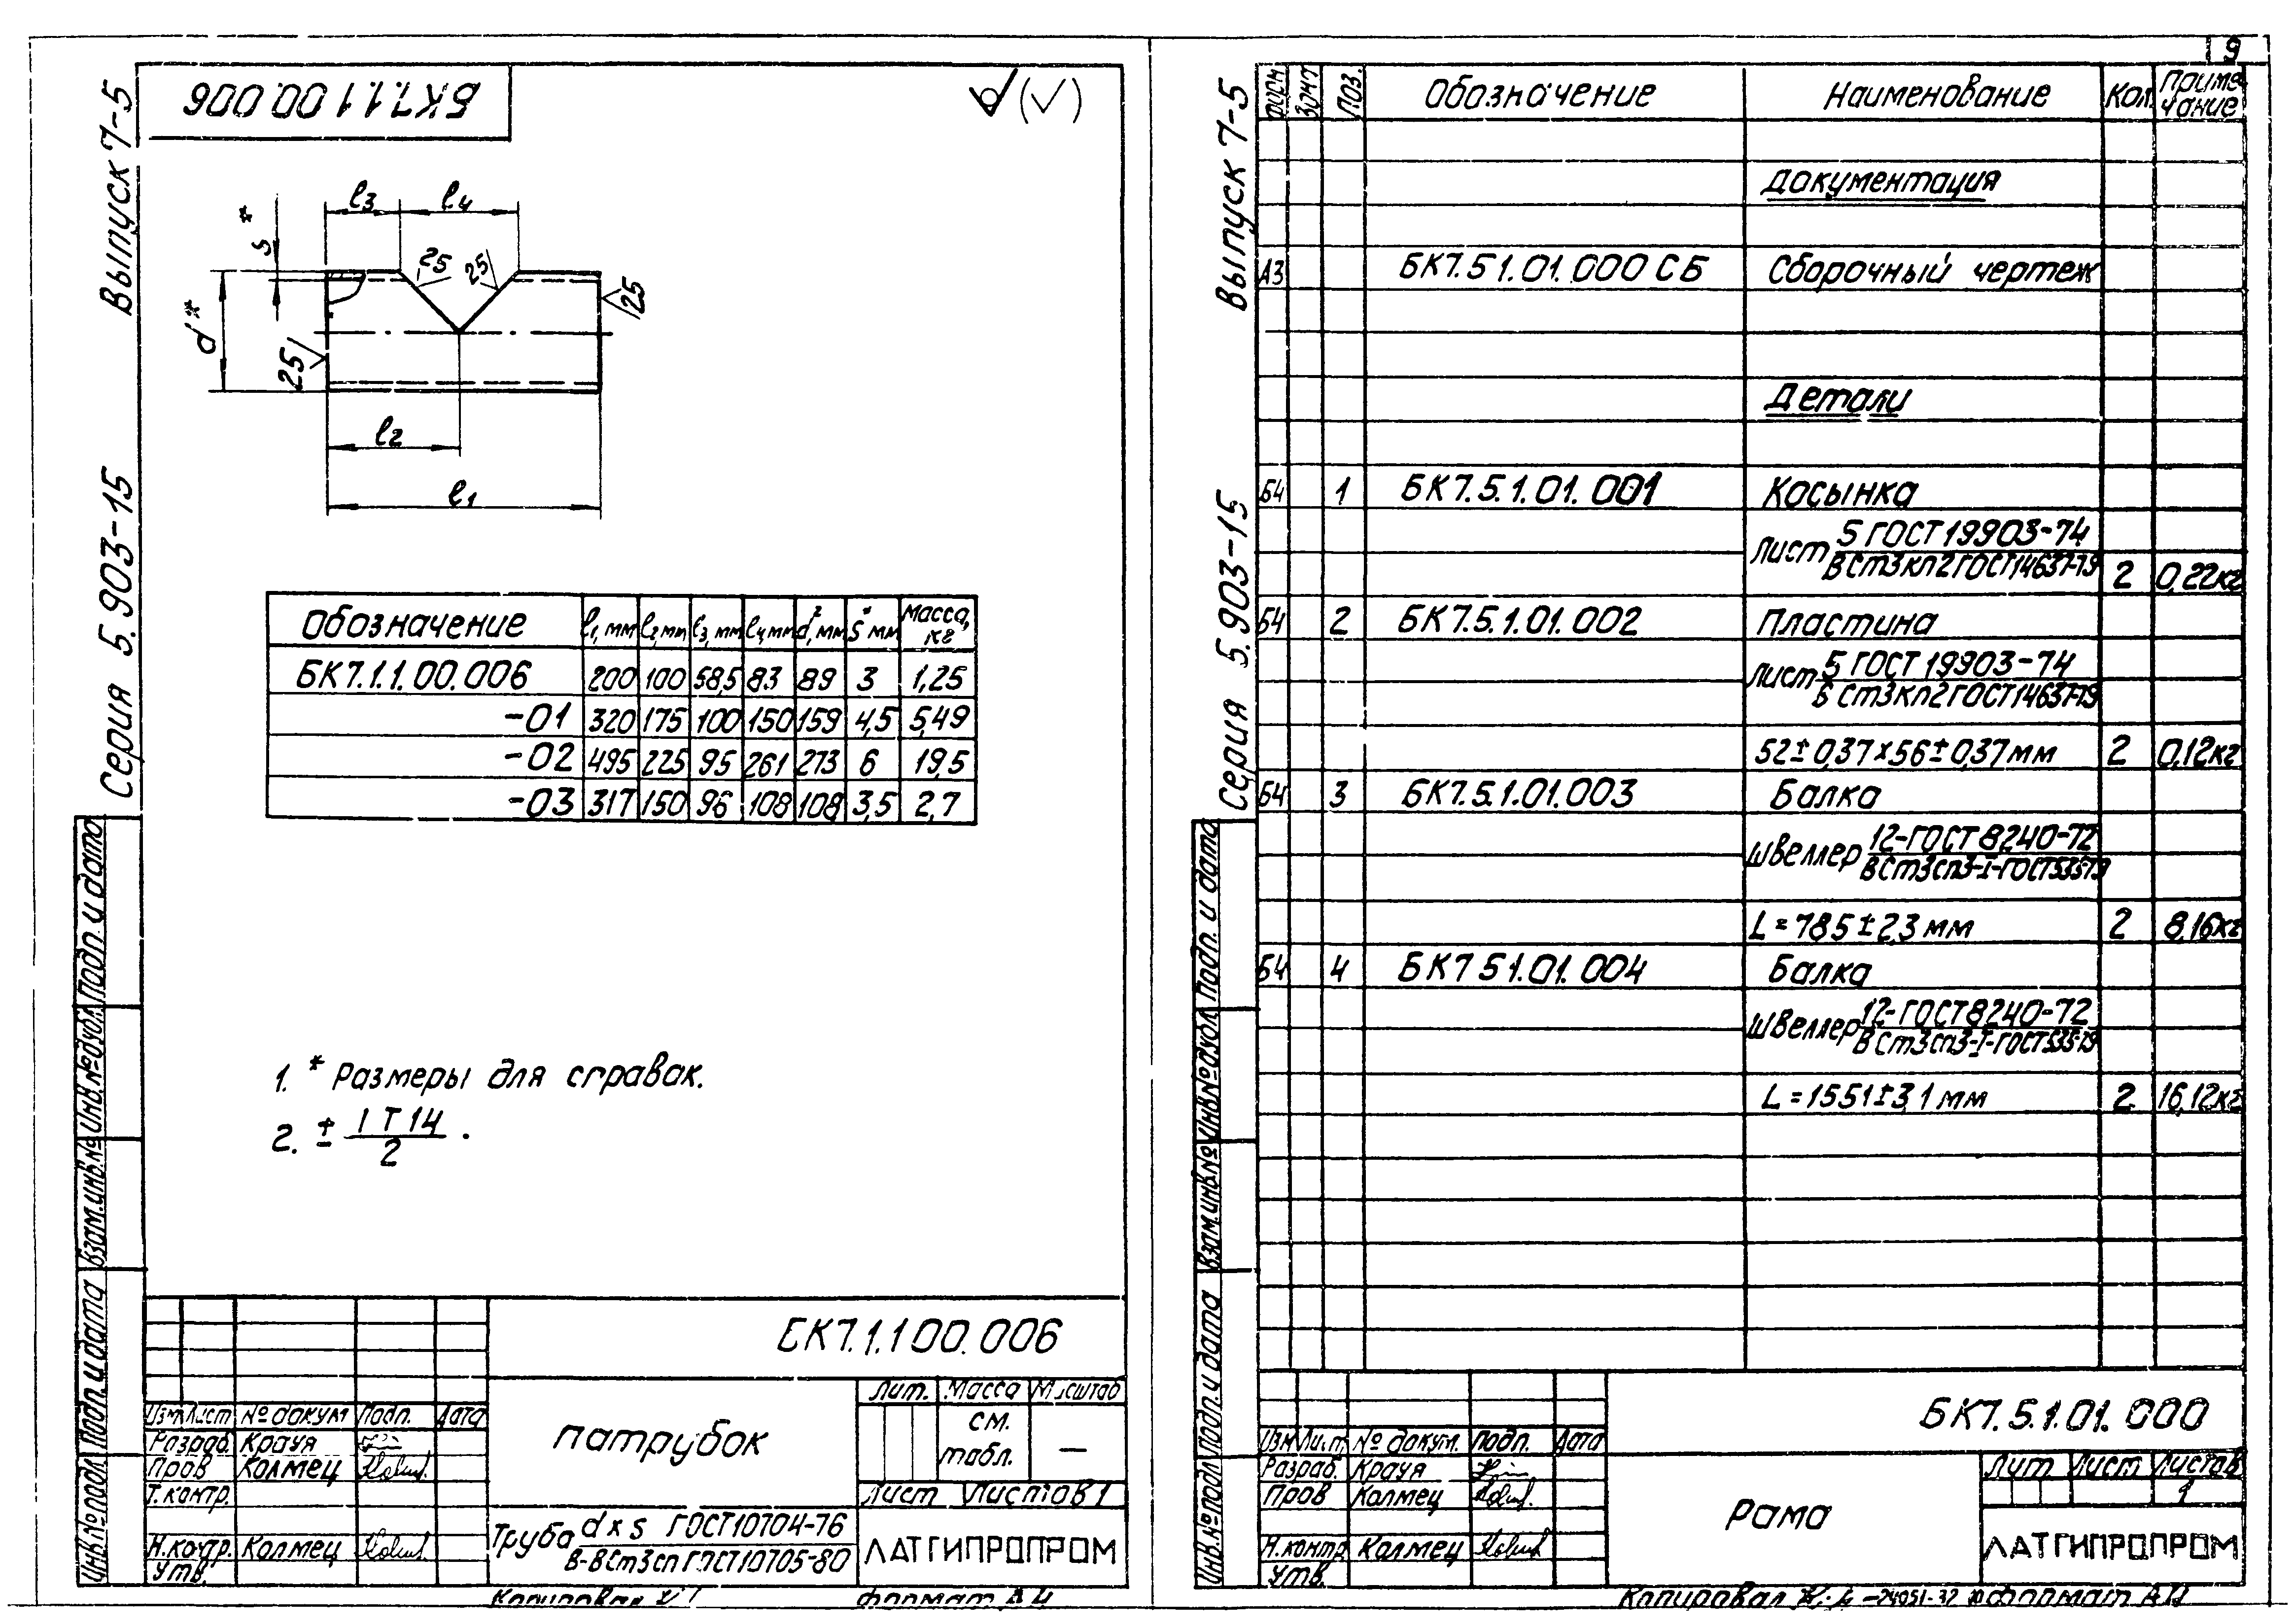 9
Выпуск 7-5
Серия 5.903-15
БК7.1.1.00.006
(√)
l3 l4
s*
d*
25 25
25
25
l2
l1
Обозначение l1, мм l2, мм l3, мм l4, мм d*, мм s* мм Масса, кг
БК7.1.1.00.006 200 100 58,5 83 89 3 1,25
-01 320 175 100 150 159 4,5 5,49
-02 495 225 95 261 273 6 19,5
-03 317 150 96 108 108 3,5 2,7
1. * Размеры для справок.
2. ± IT14/2 .
Инв.№подл. Подп. и дата Взам.инв.№ Инв.№дубл. Подп. и дата
БК7.1.1 00.006
Изм Лист № докум Подп. Дата
Разраб. Крауя
Пров Колмец
Т.контр.
Н.контр. Колмец
Утв.
Патрубок
Лит. Масса Масштаб
см. табл. —
Лист Листов 1
Труба d x s ГОСТ10704-76 / В-ВСт3сп ГОСТ10705-80
ЛАТГИПРОПРОМ
Копировал
Формат А4
Выпуск 7-5
Серия 5.903-15
Форм Зона Поз. Обозначение Наименование Кол. Примечание
Документация
А3 БК7.51.01.000 СБ Сборочный чертеж
Детали
Б4 1 БК7.5.1.01.001 Косынка
Лист 5 ГОСТ 19903-74 / ВСт3кп2ГОСТ14637-79 2 0,22кг
Б4 2 БК7.5.1.01.002 Пластина
Лист 5 ГОСТ 19903-74 / ВСт3кп2ГОСТ14637-79
52±0,37х56±0,37мм 2 0,12кг
Б4 3 БК7.5.1.01.003 Балка
Швеллер 12-ГОСТ8240-72 / ВСт3сп3-I-ГОСТ535-79
L=785±2,3 мм 2 8,16кг
Б4 4 БК7 51.01.004 Балка
Швеллер 12-ГОСТ8240-72 / ВСт3сп3-I-ГОСТ535-79
L=1551±3,1 мм 2 16,12кг
Инв.№подл. Подп. и дата Взам.инв.№ Инв.№дубл. Подп. и дата
БК7.5.1.01.000
Изм Лист № докум. Подп. Дата
Разраб. Крауя
Пров Колмец
Н.контр Колмец
Утв.
Рама
Лит Лист Листов
1
ЛАТГИПРОПРОМ
Копировал
24051-32
Формат А4